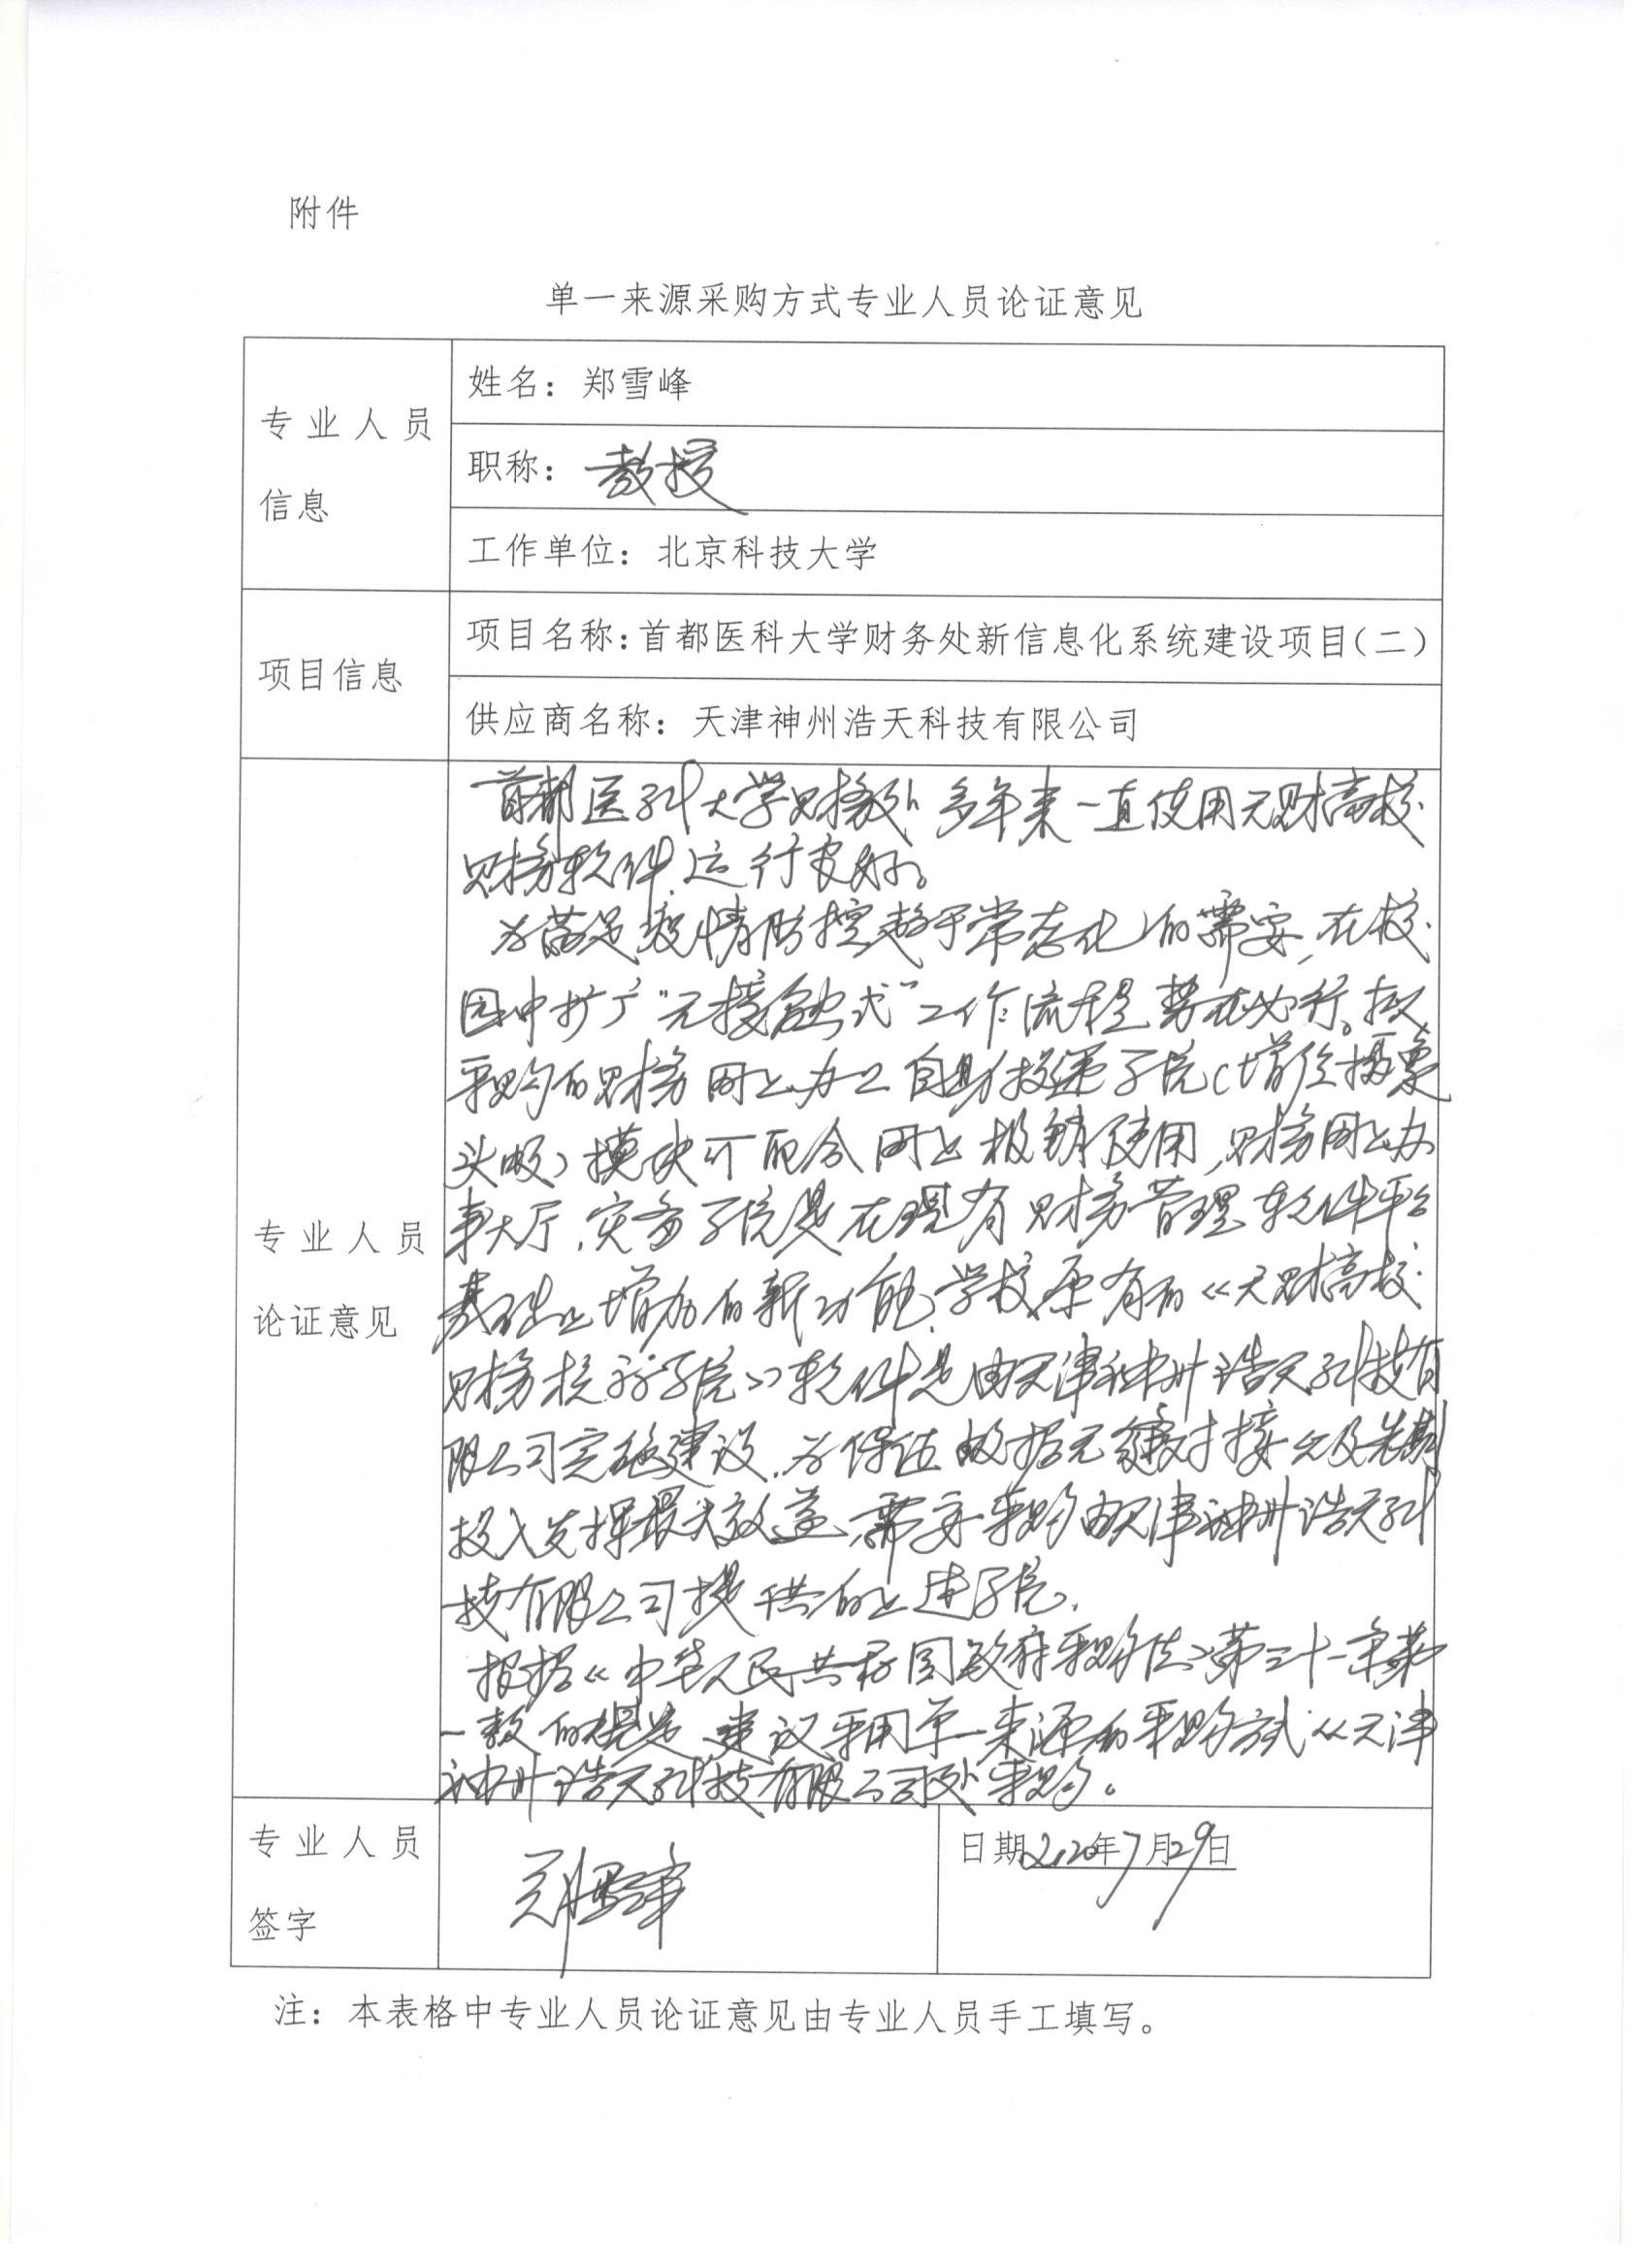 附件
单一来源采购方式专业人员论证意见
专业人员
信息
姓名：郑雪峰
职称：教授
工作单位：北京科技大学
项目信息
项目名称：首都医科大学财务处新信息化系统建设项目（二）
供应商名称：天津神州浩天科技有限公司
专业人员
论证意见
首都医科大学财务处多年来一直使用天财高校
财务软件，运行良好。
为满足疫情防控趋于常态化的需要，在校
园中扩广“无接触式”工作流程势在必行。拟
采购的财务网上办公自助投递子系统（增值摄象
头版）模块可配合网上报销使用，财务网上办
事大厅、灾备子系统是在现有财务管理软件平台
基础上增加的新功能，学校原有的《天财高校
财务核算系统》软件是由天津神州浩天科技有
限公司实施建设，为保证数据无缝对接以及先期
投入发挥最大效益，需要采购由天津神州浩天科
技有限公司提供的上述子系统。
根据《中华人民共和国政府采购法》第三十一条第
一款的规定，建议采用单一来源的采购方式从天津
神州浩天科技有限公司处采购。
专业人员
签字
郑雪峰
日期2020年7月29日
注：本表格中专业人员论证意见由专业人员手工填写。